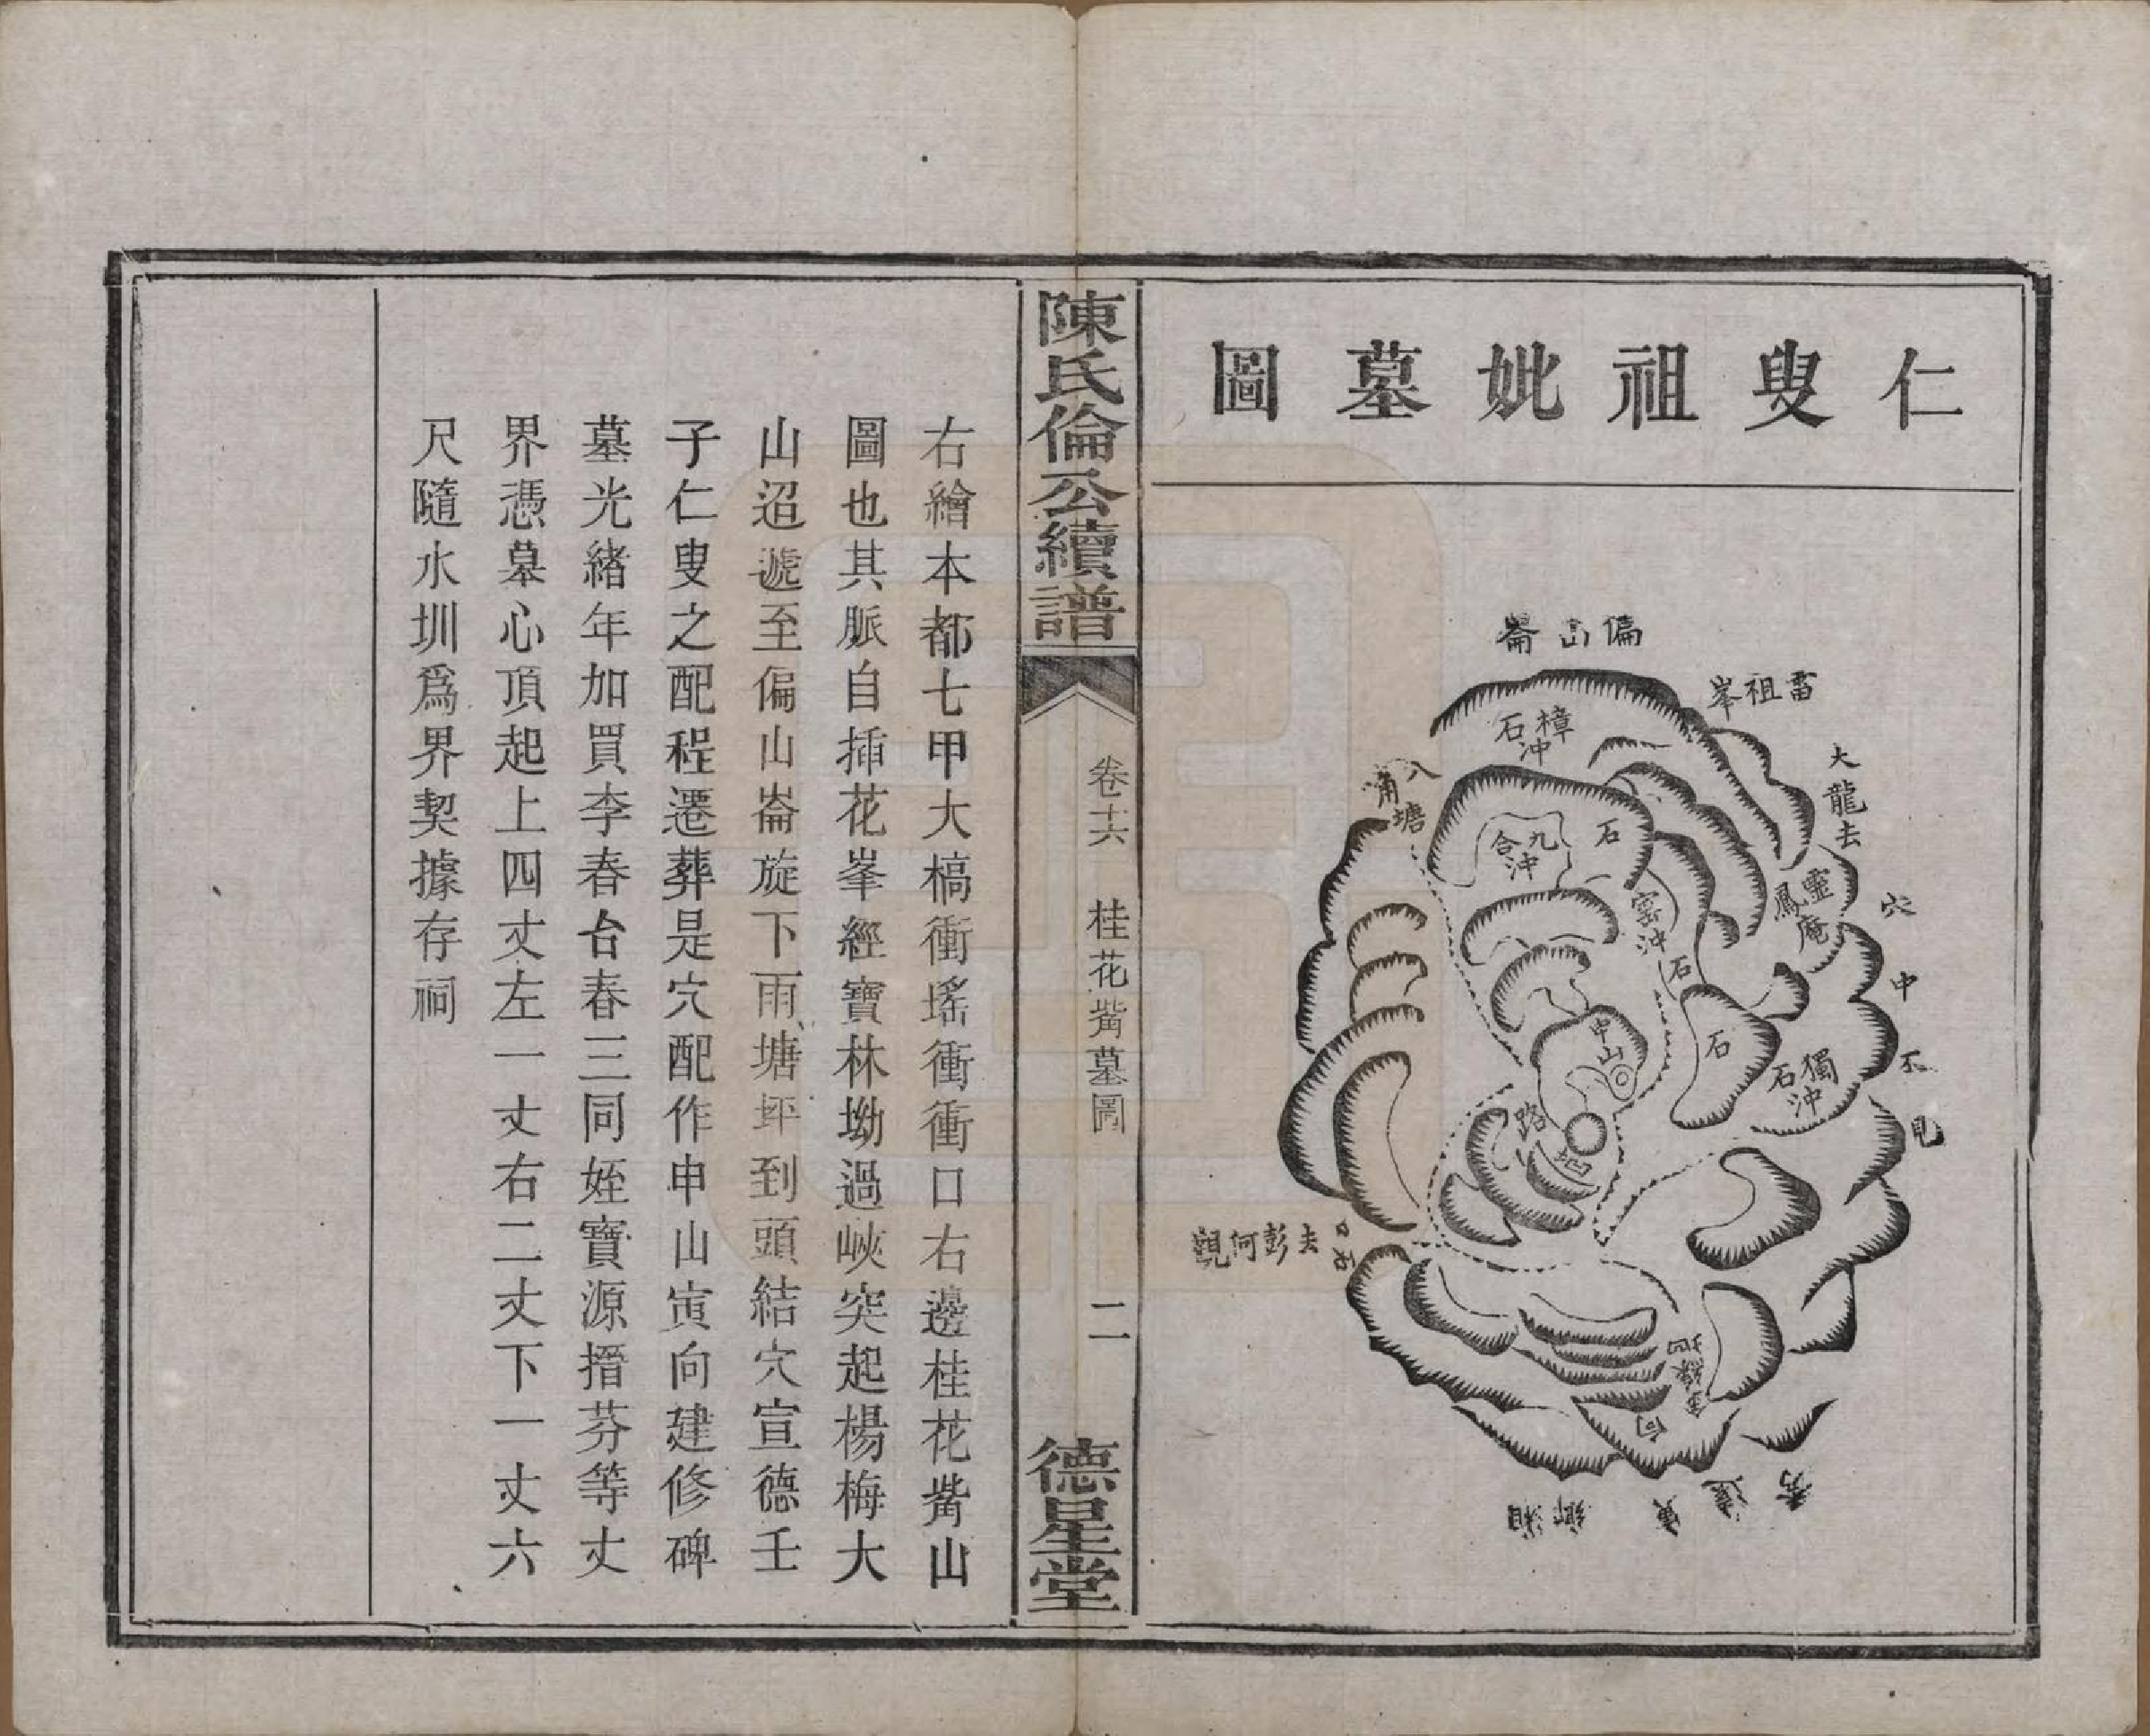 仁叟祖妣墓圖
偏山崙
雷祖峯
大龍去
樟冲
石
八角塘
九合冲
石
窰冲
石
靈鳳庵
穴中不見
中山
石
獨冲
石
路
去彭何觀
向
湘鄉
陳氏倫公續譜
卷十六 桂花嘴墓圖
二
德星堂
右繪本都七甲大槁衝瑤衝衝口右邊桂花嘴山
圖也其脈自揷花峯經寶林坳過峽突起楊梅大
山迢遞至偏山崙旋下雨塘坪到頭結穴宣德壬
子仁叟之配程遷葬是穴配作申山寅向建修碑
墓光緒年加買李春台春三同姪寶源搢芬等丈
界憑墓心頂起上四丈左一丈右二丈下一丈六
尺隨水圳爲界契據存祠